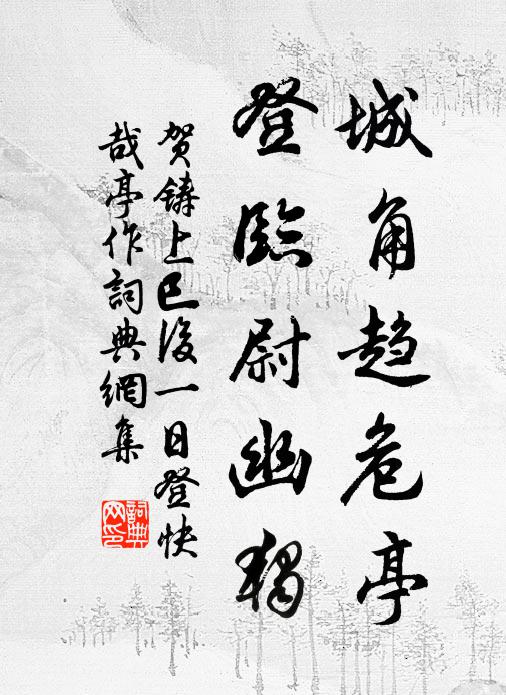 城角趋危亭
登臨尉幽獨
賀鑄上巳後一日登快
哉亭作詞典網集
詞典
网印